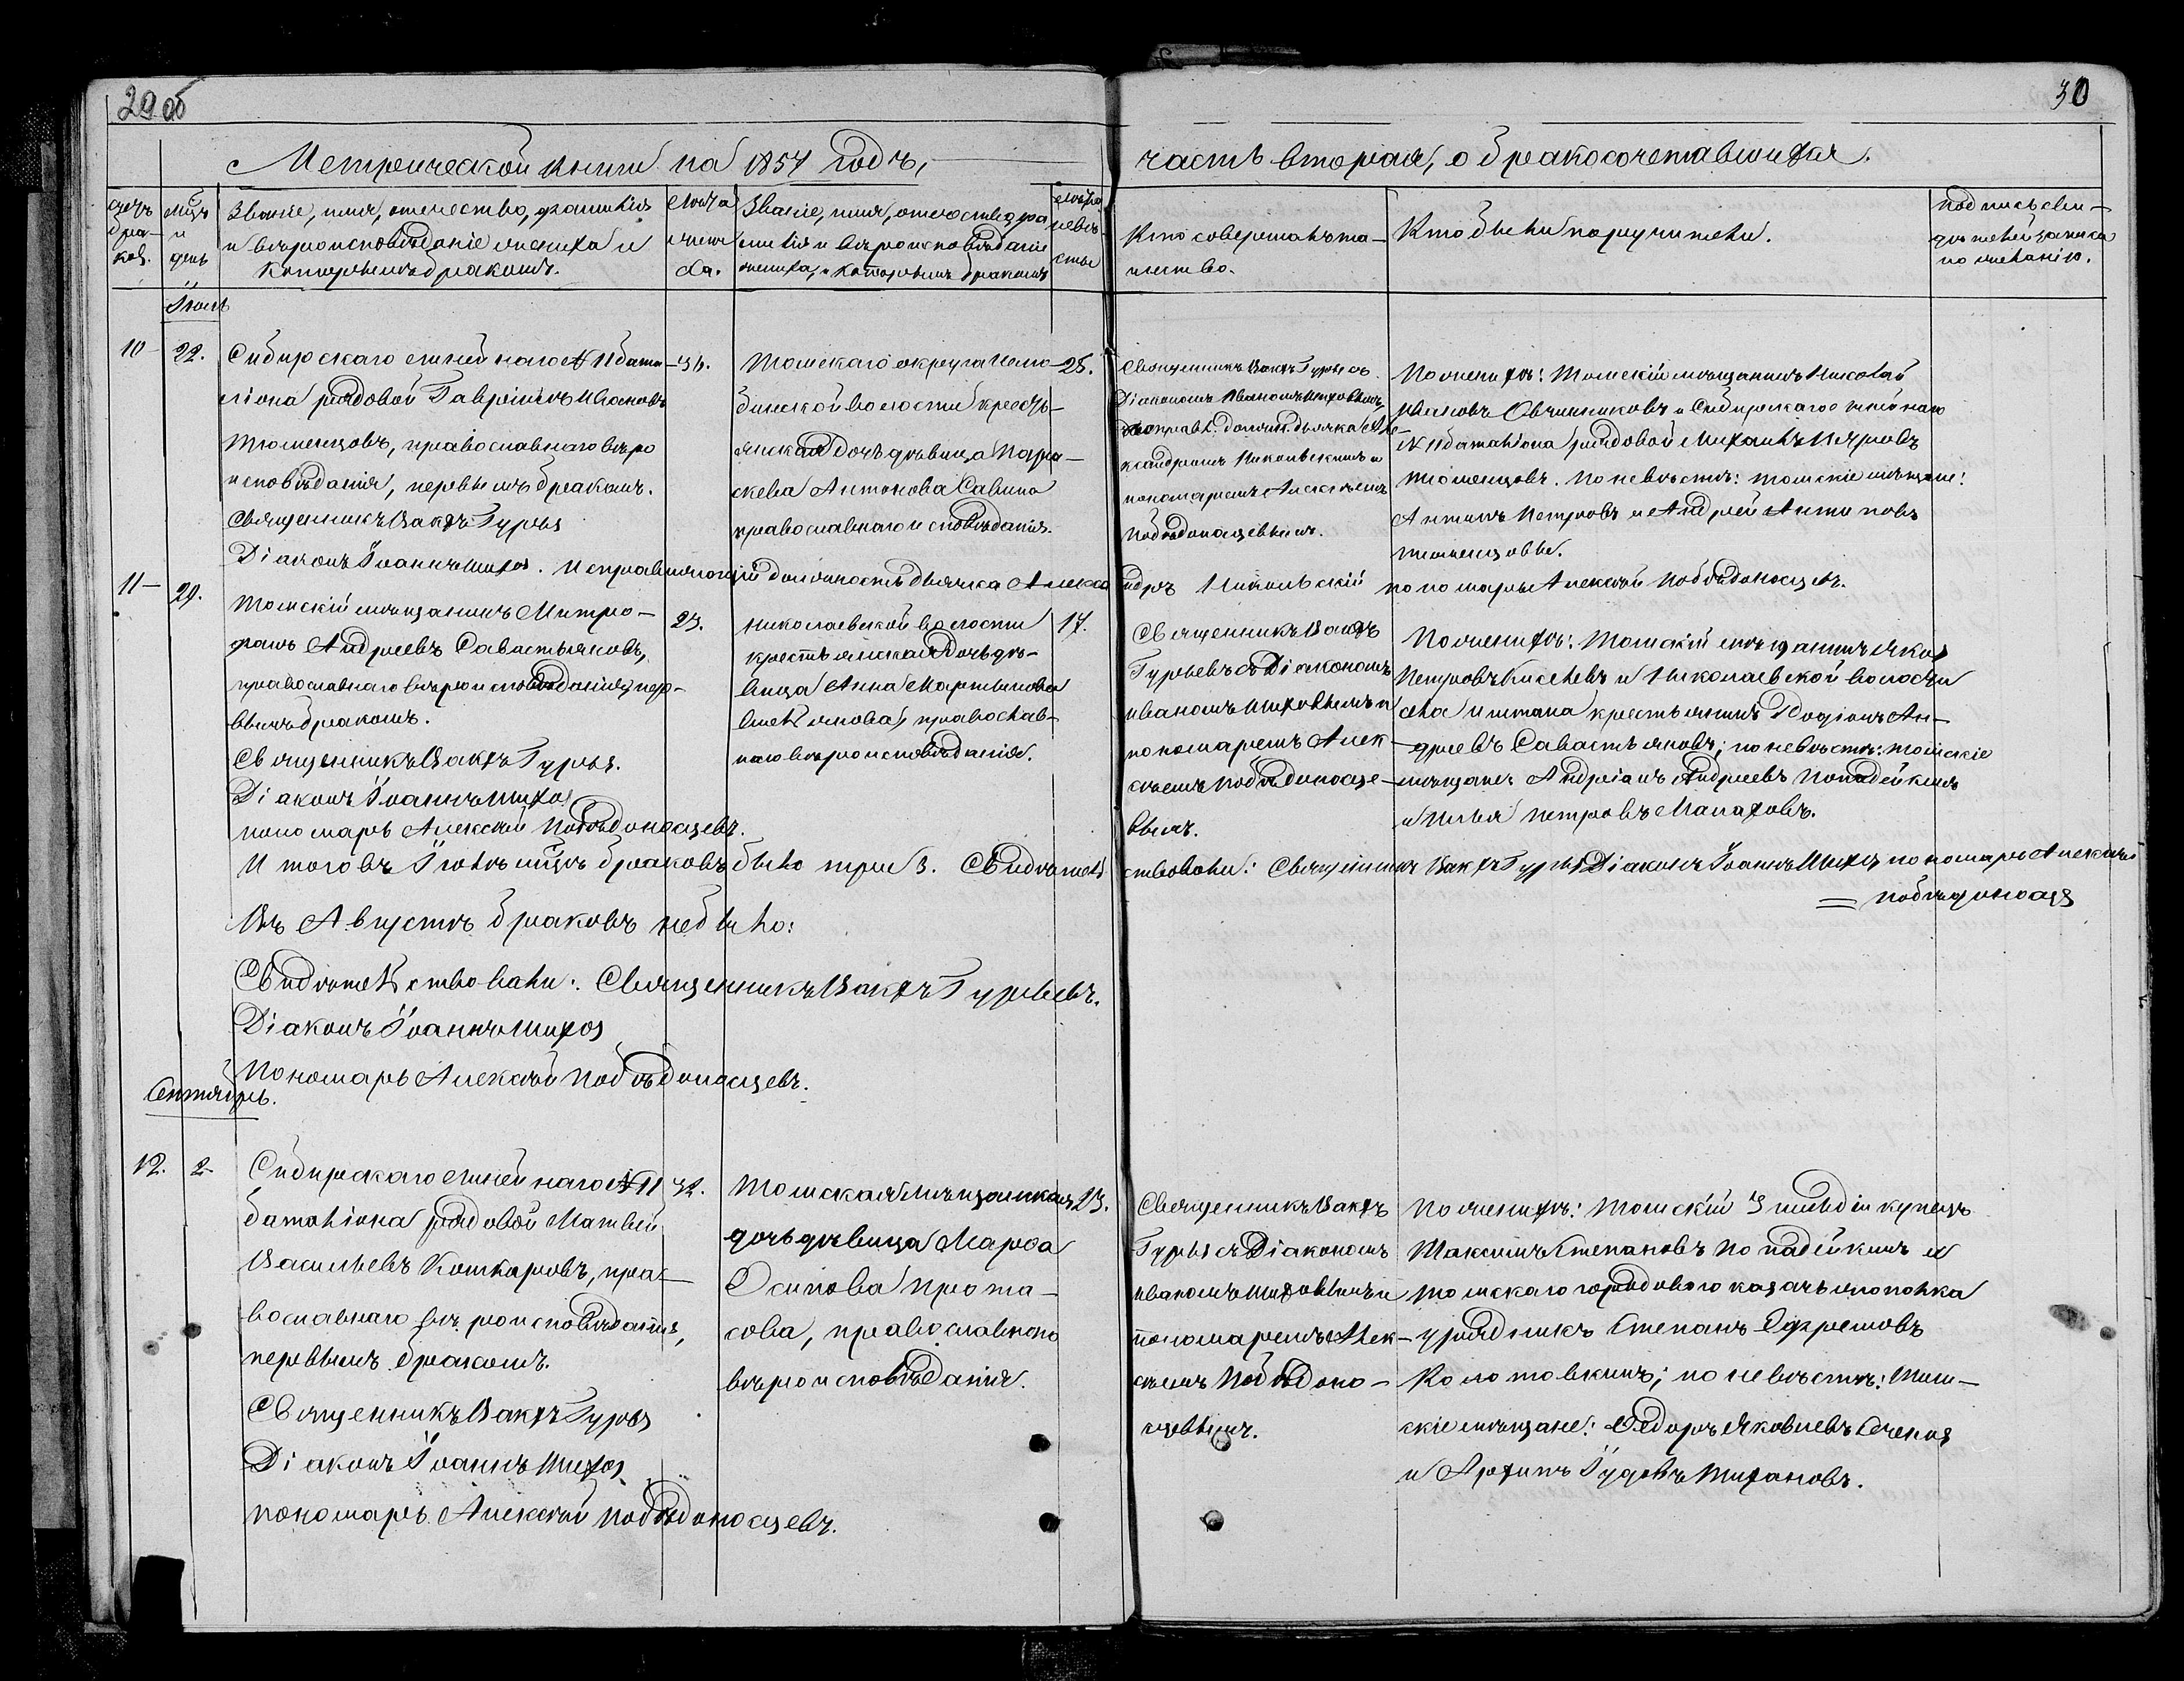 29 об
30
Метрической книги на 1854 годъ,
часть вторая, о бракосочетавшихся.
Счетъ браковъ.
Мѣсяцъ и день
Званіе, имя, отечество, фамилія
и вѣроисповѣданіе жениха и
которымъ бракомъ.
Лѣта жениха.
Званіе, имя, отечество, фамилія
и вѣроисповѣданіе
невѣсты и которымъ бракомъ
Лѣта невѣсты
Кто совершалъ таинство.
Кто были поручители.
Подпись свидѣтелей записи
по желанію.
Іюль
10
22.
Сибирскаго линейнаго №11 бата-
ліона рядовой Гавріилъ Ивановъ
Тюменцовъ, православнаго вѣро
исповѣданія, первымъ бракомъ.
Священникъ Вакхъ Гурьев
Діаконъ Іоаннъ Шихов. Исправляющій должность дьячка Алекса
ндръ Никольскій пономарь Алексѣй Побѣдоносцевъ.
36.
Томскаго округа Нело-
бинской волости кресть-
янская дочь дѣвица Пара-
скева Антонова Савина
православнаго исповѣданія.
25.
Священникъ Вакхъ Гурьевъ съ
Діакономъ Иваномъ Шиховымъ,
исправл. должн. дьячка Але-
ксандромъ Никольскимъ и
пономаремъ Алексѣемъ
Побѣдоносцевымъ.
По женихѣ: Томскій мѣщанинъ Николай
Ивановъ Овчинниковъ и Сибирскаго линейнаго
№ 11 баталіона рядовой Михаилъ Петровъ
Тюменцовъ. По невѣстѣ: Томскіе мѣщане:
Антипъ Петровъ и Андрей Антиповъ
Тюменцовы.
11
29.
Томскій мѣщанинъ Митро-
фанъ Андреевъ Савастьяновъ,
православнаго вѣроисповѣданія, пер-
вымъ бракомъ.
Священникъ Вакхъ Гурьев.
Діаконъ Іоаннъ Шихов
пономарь Алексѣй Побѣдоносцевъ.
23.
Николаевской волости
крестьянская дочь дѣ-
вица Анна Мартынова
православ-
наго вѣроисповѣданія.
17.
Священникъ Вакхъ
Гурьевъ съ Діакономъ
Иваномъ Шиховымъ и
пономаремъ Алек-
сѣемъ Побѣдоносце-
вымъ.
По женихѣ: Томскій мѣщанинъ Яков
Петровъ Киселевъ и Николаевской волости
села Иштана крестьянинъ Родіонъ Ан-
дреевъ Савастьяновъ; по невѣстѣ: Томскіе
мѣщане Андріанъ Андреевъ Попадейкинъ
и Илья Петровъ Малаховъ.
Итого въ Іюлѣ мѣсяцѣ браковъ было три 3. Свидѣтель
ствовали: Священникъ Вакхъ Гурьев Діаконъ Іоаннъ Шихов пономарь Алексѣй
Побѣдоносцев
Въ Августѣ браковъ небыло:
Свидѣтельствовали: Священникъ Вакхъ Гурьевъ.
Діаконъ Іоаннъ Шихов
Пономарь Алексѣй Побѣдоносцевъ.
Сентябрь.
12.
2
Сибирскаго линейнаго №11
баталіона рядовой Матвей
Васильевъ Кошкаровъ, пра-
вославнаго вѣроисповѣданія,
первымъ бракомъ.
Священникъ Вакхъ Гурьев
Діаконъ Іоаннъ Шихов
пономарь Алексѣй Побѣдоносцевъ.
32.
Томская мѣщанская
дочь дѣвица Марѳа
Осипова Прота-
сова, православнаго
вѣроисповѣданія.
23.
Священникъ Вакхъ
Гурьев съ Діакономъ
Иваномъ Шиховымъ и
пономаремъ Алек-
сѣемъ Побѣдоно-
сцевымъ.
По женихѣ: Томскій 3 гильдіи купецъ
Максимъ Степановъ Попадейкинъ и
Томскаго городоваго казачьяго полка
урядникъ Степанъ Ефремовъ
Коломовкинъ; по невѣстѣ: Том-
скіе мѣщане: Ѳедоръ Яковлевъ
и Архипъ Іудовъ Тихановъ.